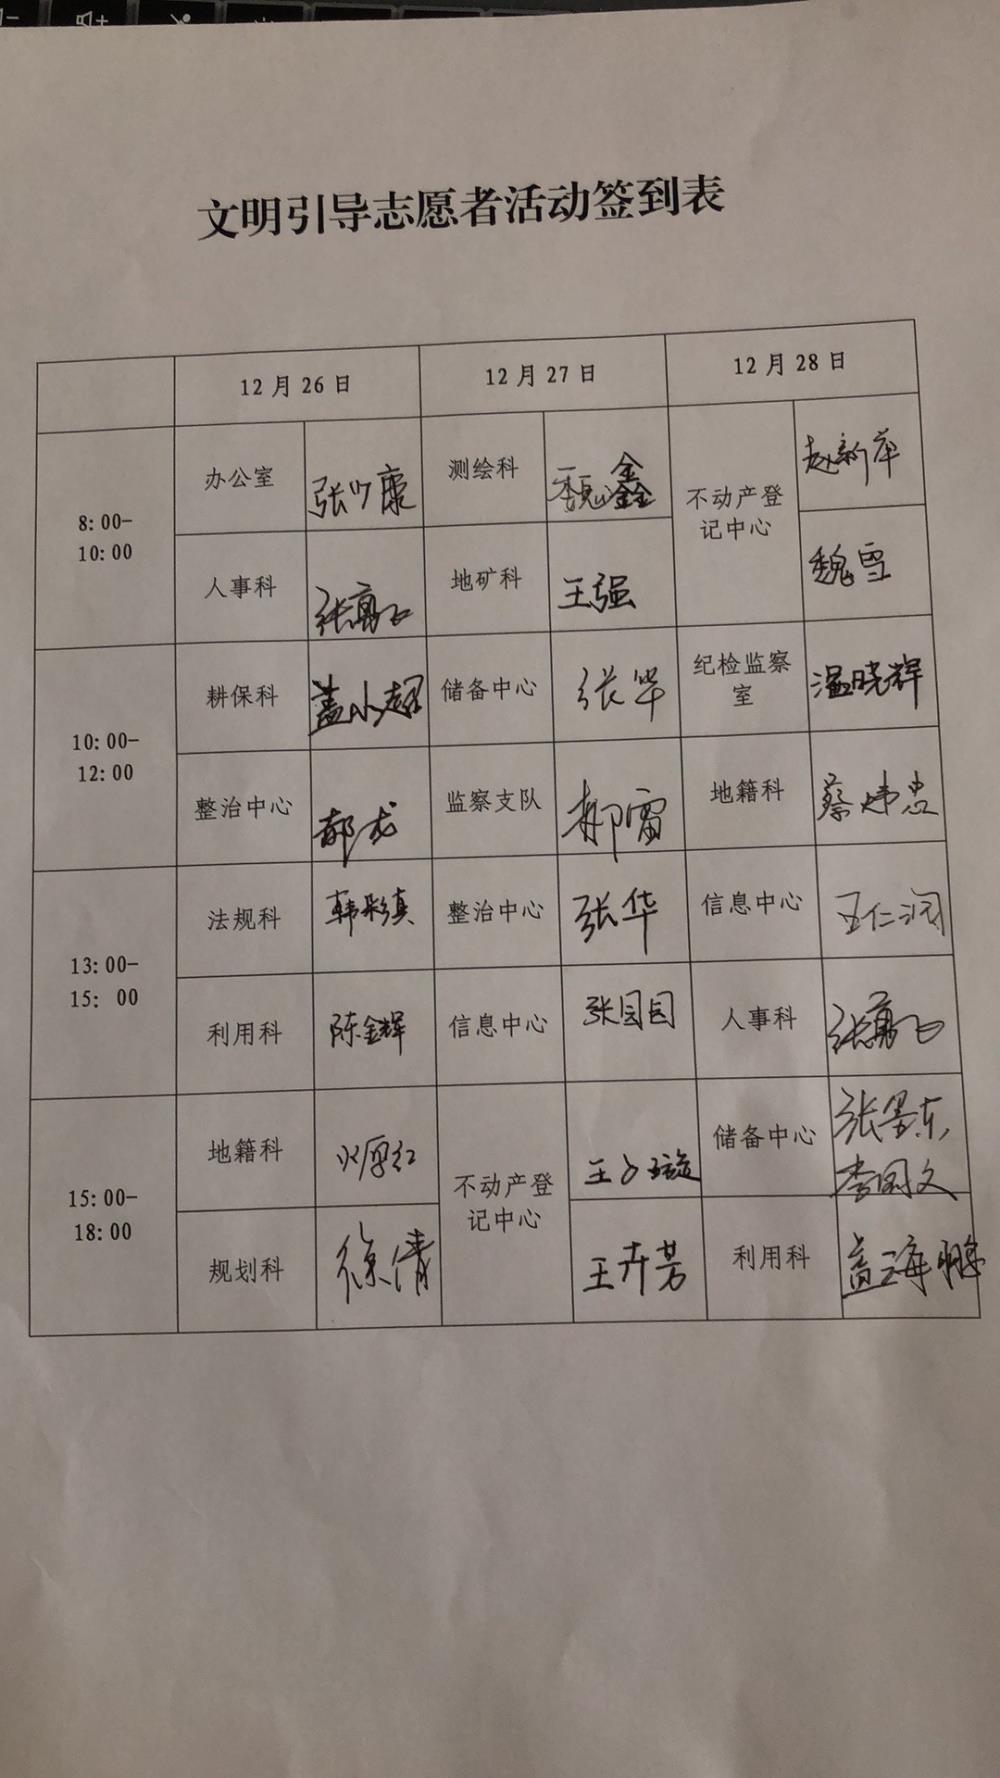 文明引导志愿者活动签到表
12月26日 12月27日 12月28日
8:00-
10:00
办公室 张少康 测绘科 魏鑫 不动产登
记中心 赵新华
人事科 地矿科 王强 魏雪
10:00-
12:00
耕保科 盖小超 储备中心 张华 纪检监察
室 温晓辉
整治中心 郝龙 监察支队 郝雷 地籍科 蔡炜忠
13:00-
15: 00
法规科 韩彩真 整治中心 张华 信息中心 王仁润
利用科 陈金辉 信息中心 张园园 人事科
15:00-
18:00
地籍科 不动产登
记中心 王子璇 储备中心
李国文
规划科 徐倩 王卉芳 利用科 盖海鹏